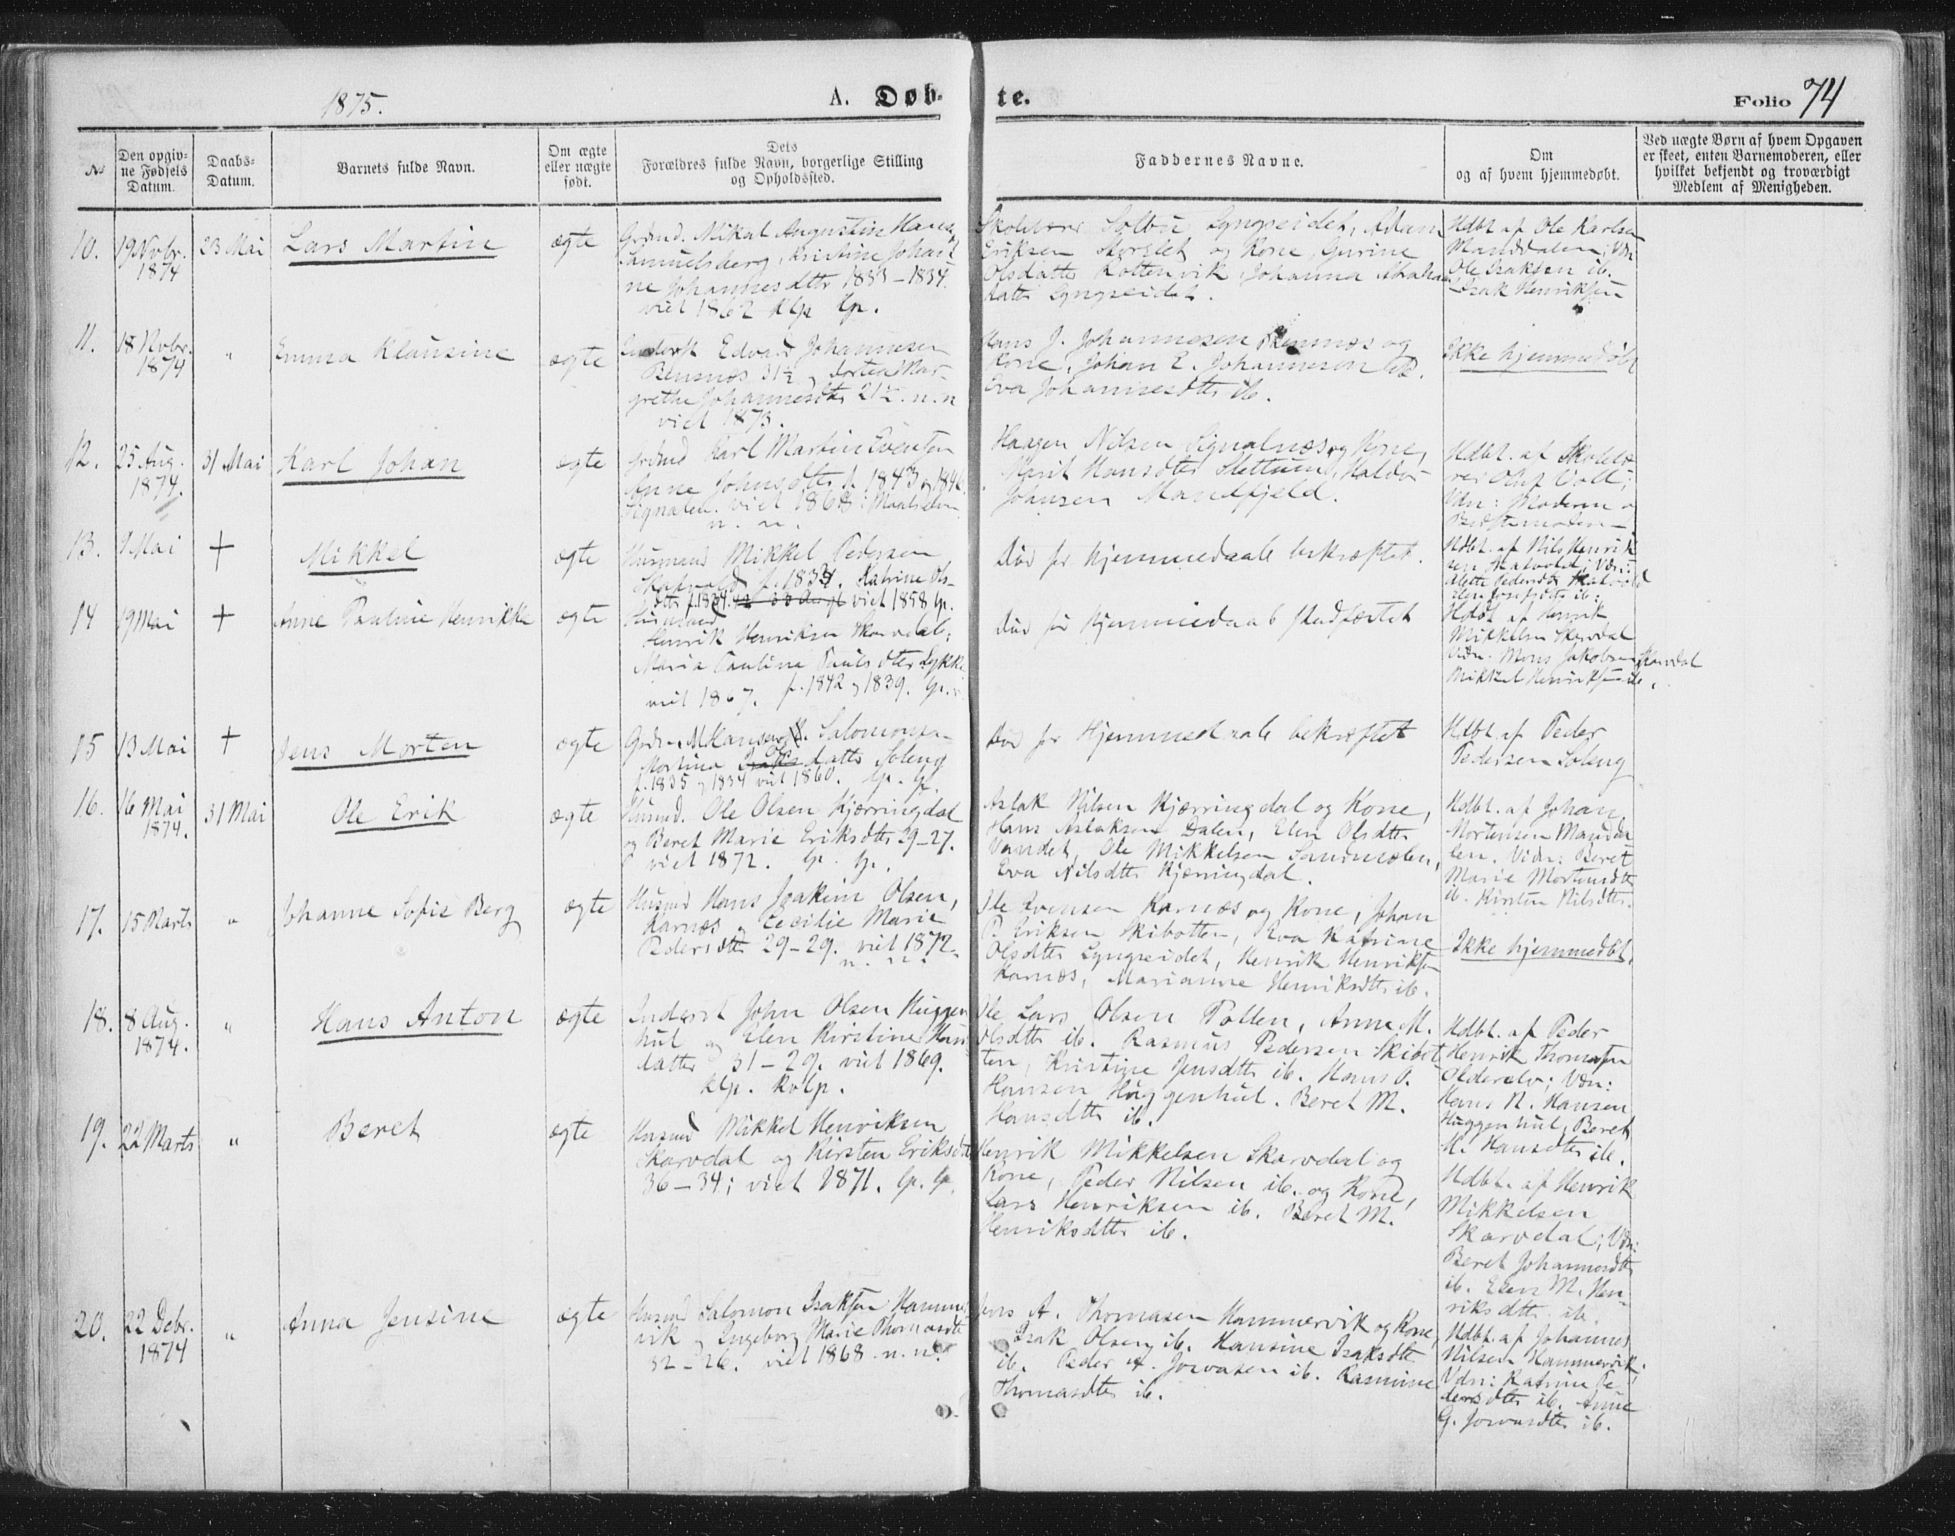 1875.
A. Døb-
te.
Folio 74
No
Den opgiv-
ne Fødsels
Datum.
Daabs-
Datum.
Barnets fulde Navn.
Om ægte
eller uægte
født.
Dets
Forældres fulde Navn, borgerlige Stilling
og Opholdssted.
Faddernes Navne.
Om
og af hvem hjemmedøbt.
Ved uægte Børn af hvem Opgaven
er skeet, enten Barnemoderen, eller
hvilket bekjendt og troværdigt
Medlem af Menigheden.
10.
19 Novbr.
1874
23 Mai
Lars Martin
ægte
Grdmd. Mikal Augustin Hansen
Samuelsberg, Kristine Johan
ne Johannesdttr 1833 – 1834.
viet 1862 klp lp.
Skolelærer Solbu Lyngseidet, Adam
Eriksen Storslet og Kone, Gurine
Olsdatter Rottenvik, Johanna Abraham
datter Lyngseidet.
Hdbt. af Ole Karlsen
Manddalen; Vdn
Ole Isaksen ib.
Isak Henriksen
11.
18 Novbr.
1874
"
Emma Klausine
ægte
Edvard Johannesen
Bensnæs 31½ og Dortea Mar-
grethe Johannesdtr 21½. n. n
viet 1873.
Hans J. Johannesen Bensnæs og
Kone, Johan E. Johannesen ib.
Eva Johannesdttr ib.
Ikke hjemmedøbt
12.
25 Aug.
1874.
31 Mai
Karl Johan
ægte
Grdmd Karl Martin Evensen
Anne Johnsdttr f. 1843 og 1846.
Signalen. viet 1868 i Maalselven
n. n.
Haagen Nilsen Signalnæs og Kone,
Marit Hansdtter Slettum, Haldor
Johansen Mandfjeld.
Hdbt. af Skolelæ-
rer Oluf Voll;
Vdn: Moderen og
Bedstemoderen
13.
1 Mai
+
Mikkel
ægte
Husmand Mikkel Pedersen
Skatvold f. 1833. Katrine Ols-
dttr f. 1834. viet 1858 lp.
Død før Hjemmedaab bekræftet.
Hdbt. af Nils Henrik
sen Skatvold; Vdn:
14
19 Mai
+
Anne Pauline Henrikke
ægte
Husmand
Henrik Henriksen Skarvdal;
Maria Paulina Paulsdtter Lykke
viet 1867. f. 1842 og 1839. lp.
Død før Hjemmedaab stadfæstet
Hdbt af Henrik
Mikkelsen Skarvdal
Vidn. Mons Jakobsen Skarvdal
Mikkel Henriksen ib.
15
13 Mai
+
Jens Morten
ægte
Grdm. M. Hansen og Salomonsen
Martina datter Soleng
f. 1835 og 1834 viet 1860. lp. lp.
Død før Hjemmedaab bekræftet
Hdbt af Peder
Pedersen Soleng
16.
16 Mai
1874.
31 Mai
Ole Erik
ægte
Husmd. Ole Olsen Kjærringdal
og Beret Marie Eriksdttr 29–27.
viet 1872. lp. lp.
Aslak Nilsen Kjærringdal og Kone,
Hans Aslaksen Dalen, Elen Olsdttr
Vandet, Ole Mikkelsen Sandmælen,
Eva Nilsdttr Kjærringdal.
Hdbt. af Johan
Mortensen Mandda
len. Vidn: Beret
Marie Mortensdttr
ib. Kirsten Nilsdttr.
17.
15 Marts
"
Johanne Sofie Berg
ægte
Husmd Hans Joakim Olsen,
Karnæs og Cecilie Marie
Pedersdttr 29–29. viet 1872.
n. n.
Ole Evensen Karnæs og Kone, Johan
P. Eriksen Skibotten, Eva Katrine
Olsdttr Lyngseidet, Henrik Henriksen
Karnæs, Marianne Henriksdttr ib.
Ikke hjemmedbt.
18.
8 Aug.
1874.
"
Hans Anton
ægte
Inderst John Olsen Huggen
hul og Elen Kirstine Hans
datter 31–29. viet 1869.
klp. kvlp.
Ole Lars Olsen Pollen, Anne M.
Olsdttr ib. Rasmus Pedersen Skibot
ten, Kristine Jensdttr ib. Hans O.
Hansen Huggenhul. Beret M.
Hansdttr ib.
Hdbt. af Peder
Henrik Thomassen
Olderelv; Vdn:
Hans N. Hansen
Huggenhul, Beret
M. Hansdttr ib.
19.
22 Marts
"
Beret
ægte
Husmd Mikkel Henriksen
Skarvdal og Kirsten Eriksdttr
36–34; viet 1871. lp. lp.
Henrik Mikkelsen Skarvdal og
Kone, Peder Nilsen ib. og Kone,
Lars Henriksen ib. Beret M.
Henriksdttr ib.
Hdbt. af Henrik
Mikkelsen
Skarvdal; Vdn:
Beret Johannesdttr
ib. Elen M. Hen
riksdttr ib.
20.
22 Debr.
1874
"
Anna Jensine
ægte
Husmd Salomon Isaksen Hammer
vik og Ingeborg Marie Thomasdttr
32–26. viet 1868. n. n.
Jens A. Thomasen Hammervik og Kone,
Isak Olsen ib. Hansine Isaksdttr
ib. Peder A. Jovasen ib. Rasmine
Thomasdttr ib.
Hdbt. af Johannes
Nilsen Hammervik;
Vdn: Katrine Pe-
dersdttr ib. Anne
G. Jovasdttr ib.